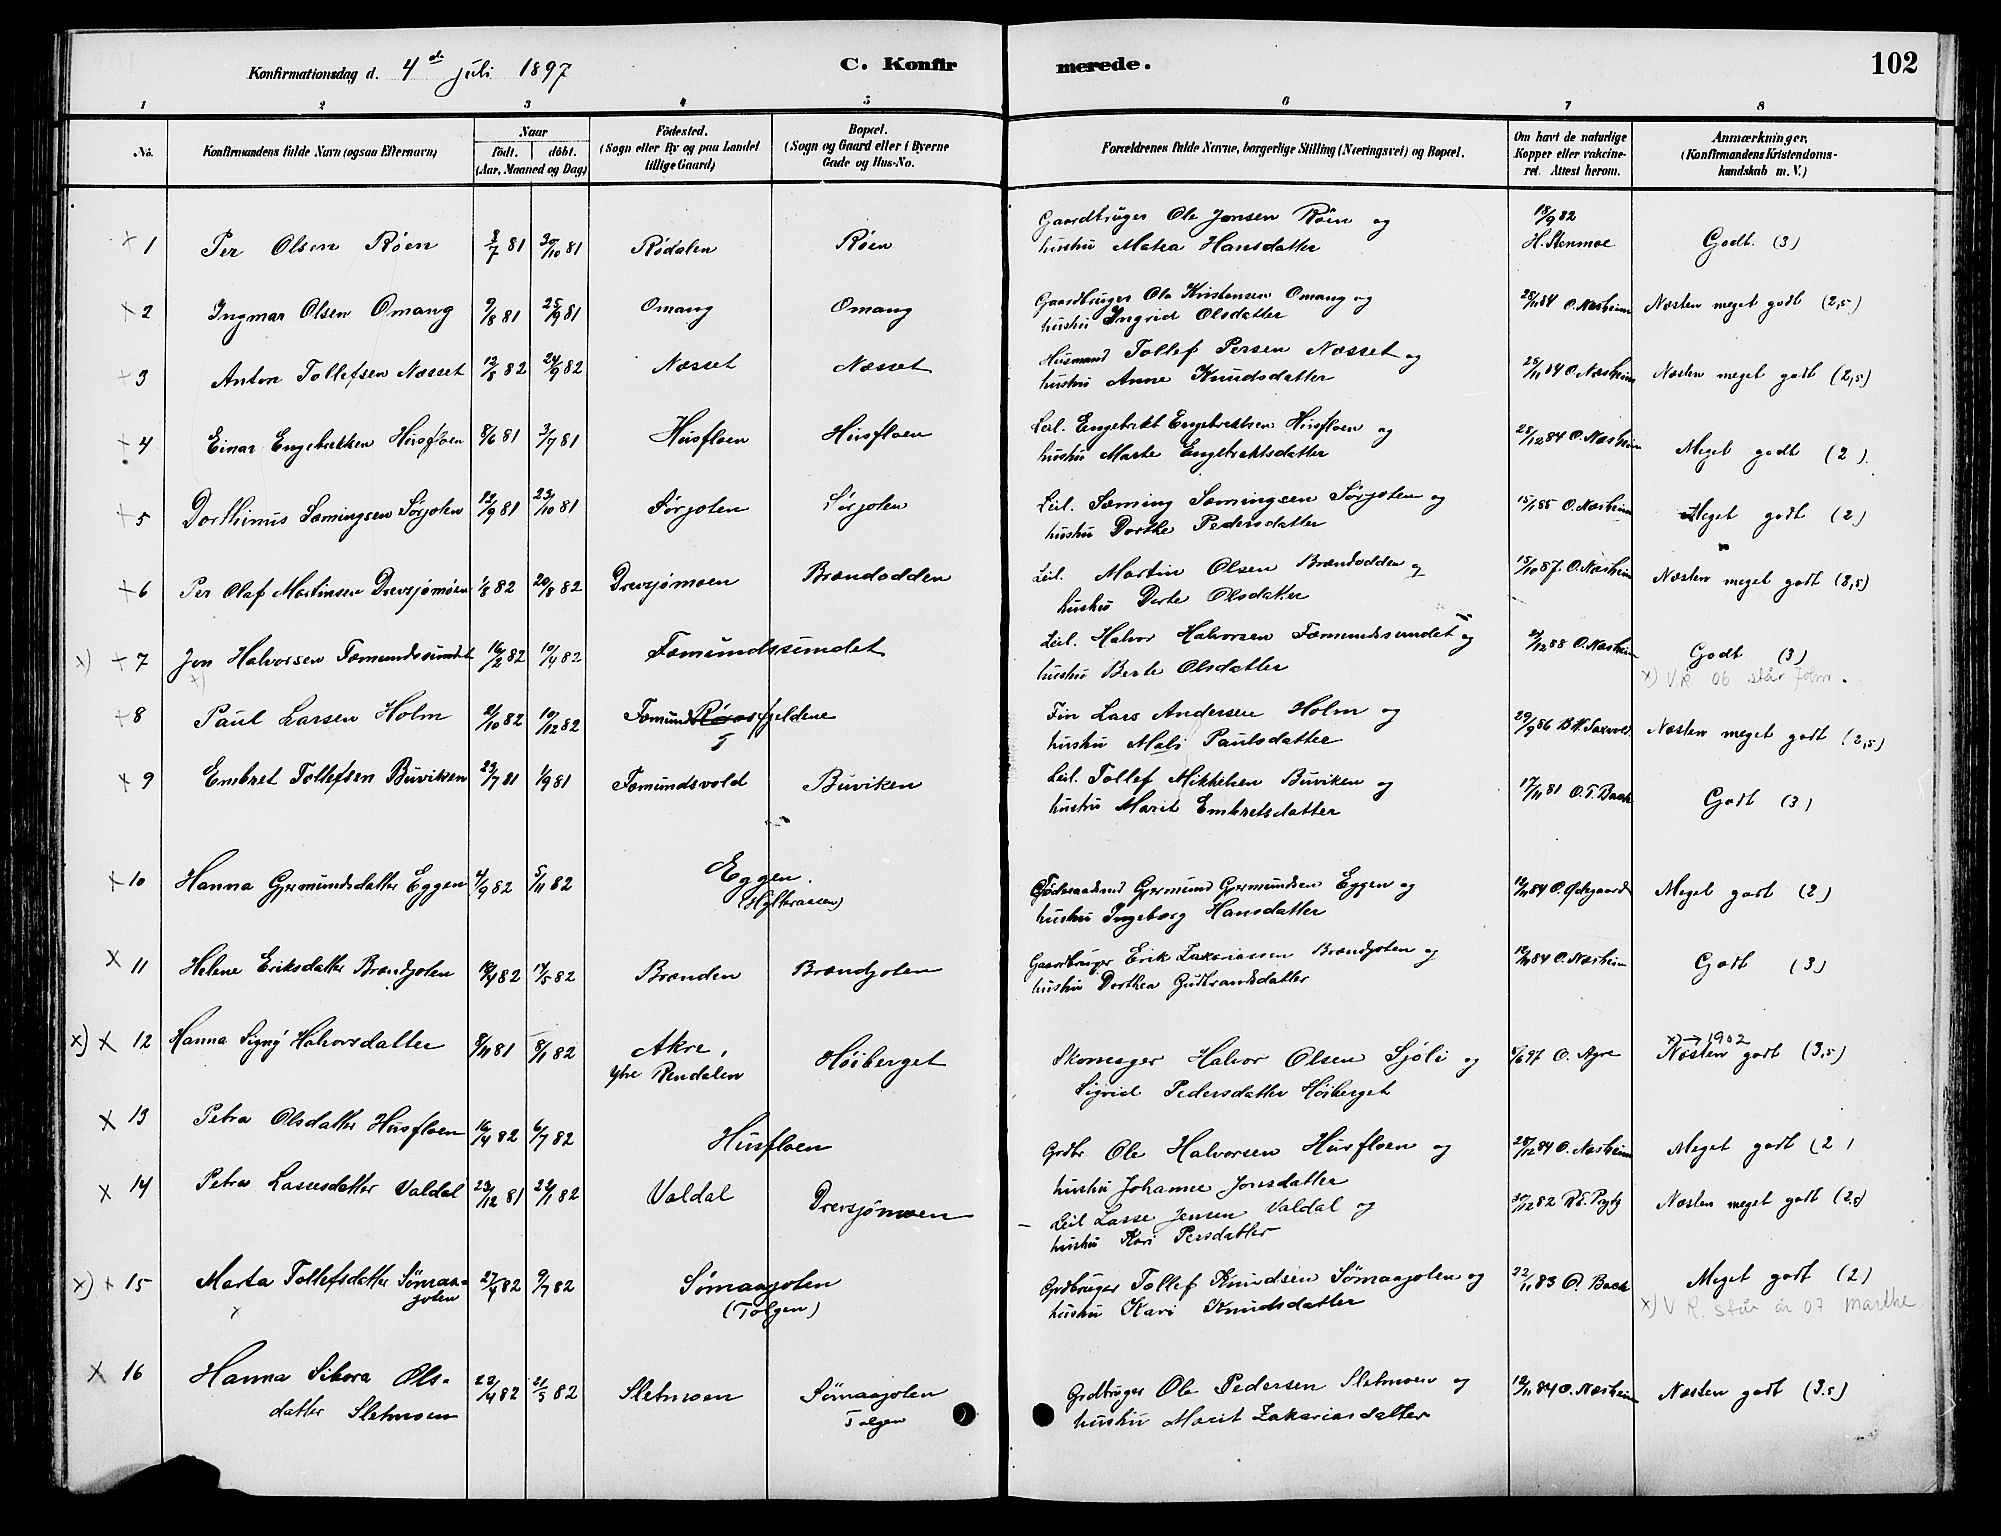 Konfirmationsdag d. 4de juli 1897 C. Konfirmerede. 102
1 2 3 4 5 6 7 8
No. Konfirmandens fulde Navn (ogsaa Efternavn) Naar födt. döbt. (Aar, Maaned og Dag) Födested. (Sogn eller By og paa Landet tillige Gaard) Bopæl. (Sogn og Gaard eller i Byerne Gade og Hus-No.
Forældrenes fulde Navne, borgerlige Stilling (Næringsvei) og Bopæl. Om havt de naturlige Kopper eller vakcineret. Attest herom. Anmærkninger, (Konfirmandens Kristendomskundskab m. V.)
x 1 Per Olsen Røen 8/7 81 30/10 81 Rødalen Røen Gaardbruger Ole Jonsen Röen og 18/9 82
hushu Matea Hansdatter H. Stenmoe Godt. (3)
x 2 Ingmar Olsen Omang 9/8 81 25/9 81 Omang Omang Gaardbruger Ole Kristensen Omang og
hushu Ingrid Olsdatter 28/11 84 O. Næsheim Næsten meget godt (2,5)
x 3 Anton Tollefsen Næsset 12/8 82 24/9 82 Næsset Næsset Husmand Tollef Persen Næsset og
hushu Anne Knudsdatter 28/11 84 O. Næsheim Næsten meget godt (2,5)
x 4 Einar Engebretsen Husfloen 8/6 81 3/7 81 Husfloen Husfloen Leil. Engebrikt Engebretsen Husfloen og
hushu Marte Engebriktsdatter 28/12 84 O. Næsheim Meget godt (2).
x 5 Dorthinus Sæmingsen Sørjoten 12/9 81 23/10 81 Sørjoten Sørjoten Leil. Sæming Sæmingsen Sørjoten og
hushu Dorthe Pedersdatter 15/1 85 O. Næsheim Meget godt (2)
x 6 Per Olaf Martinsen Drevsjømoen 1/8 82 20/8 82 Drevsjømoen Brændodden Leil. Martin Olsen Brændodden og
hushu Dorte Olsdatter 15/10 87. O. Næsheim Næsten meget godt (2,5)
x) x 7 Jon Halvorsen Fæmundssundet 16/2 82 10/4 82 Fæmundssundet Leil. Halvor Halvorsen Fæmundssundet og
hushu Berte Olsdatter 21/12 88 O. Næsheim Godt (3)
x) V R 06 står John.
x 8 Paul Larsen Holm 21/10 82 10/12 82 Fæmundsfjeldene Fin Lars Andersen Holm og
hushu Mali Paulsdatter 29/9 86 Næsten meget godt (2,5)
x 9 Embret Tollefsen Buviken 23/7 81 1/9 81 Fæmundsvold Buviken Leil. Tollef Mikkelsen Buviken og
hushu Marit Embretsdatter 17/11 81 O. T. Back Godt (3)
x 10 Hanna Gjermundsdatter Eggen 4/9 82 5/11 82 Eggen.
(Hylleraasen) Föderaadsmd Gjermund Gjermundsen Eggen og
hushu Ingeborg Hansdatter 12/11 84 O. Ødegaard Meget godt (2)
x 11 Helene Eriksdatter Brændjoten 17/5 82 Brænden Brændjoten Gaardbruger Erik Zakariassen Brændjoten og
hushu Dorthea Gudbrandsdatter 12/11 84 O. Næsheim Godt (3)
x) x 12 Hanna Signy Halvorsdatter 8/11 81 8/1 82 Akre, Ytre Rendalen Høiberget Skomager Halvor Olsen Sjöli og
Sigrid Pedersdatter Høiberget O. Agre x) → 1902
Næsten godt (3,5)
x 13 Petra Olsdatter Husfloen 16/4 82 6/7 82 Husfloen Grdbr Ole Halvorsen Husfloen og
hushu Johanne Jonsdatter 28/12 84 O. Næsheim Meget godt (2)
x 14 Petra Lassesdatter Valdal 23/12 81 22/1 82 Valdal Drevsjømoen Leil Lasse Jensen Valdal og
hushu Kari Persdatter 30/12 82 Næsten meget godt (2,5)
x) x 15 Marta Tollefsdatter Sømaajoten 27/4 82 9/7 82 Sømaajoten
(Tolgen) Grdbruger Tollef Knudsen Sømaajoten og
hushu Kari Knudsdatter 22/11 83 O. Back Meget godt (2)
x) V R. står år 07 Marthe
x 16 Hanna Sikora Olsdatter Sletmoen 22/4 82 21/5 82 Sletmoen Sømaajoten
Tolgen Grdbruger Ole Pedersen Sletmoen og
hushu Marit Zakariasdatter 12/11 84 O. Næsheim Næsten godt (3.5)